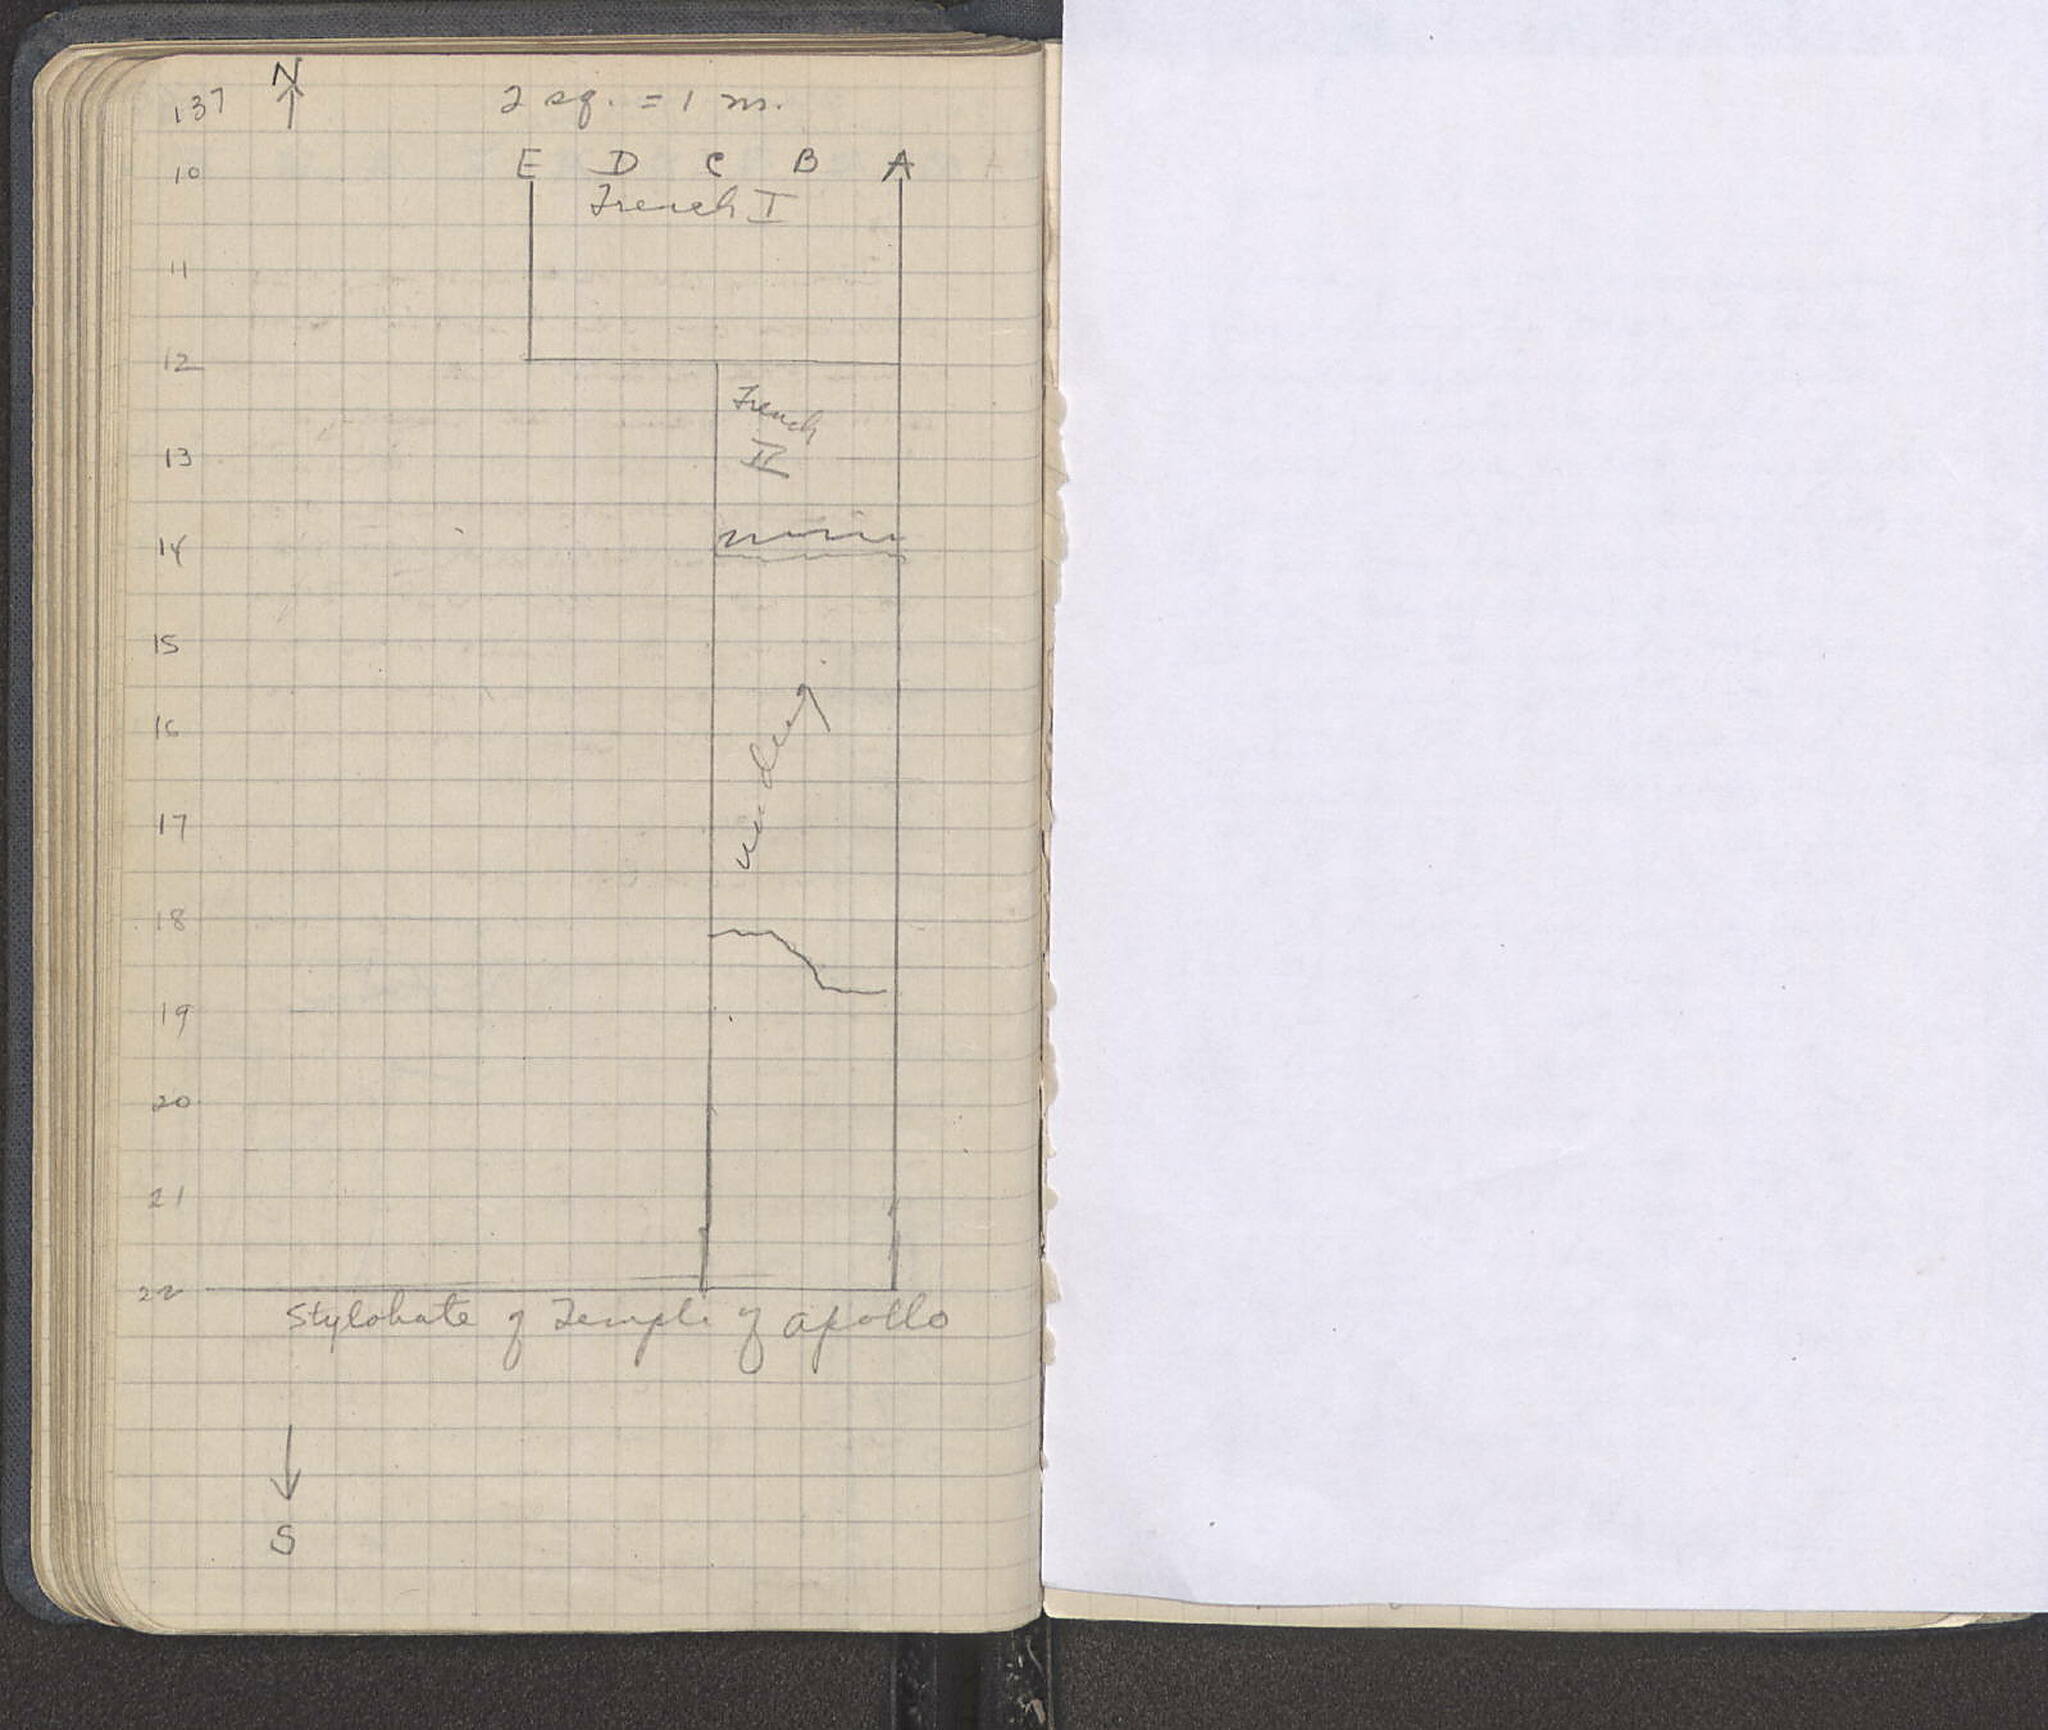 137 N 2 sq. = 1 m.
10 E D C B A
Trench I
11
12
Trench
II
13
14
15
undug
16
17
18
19
20
21
22
Stylobate of Temple of Apollo
S